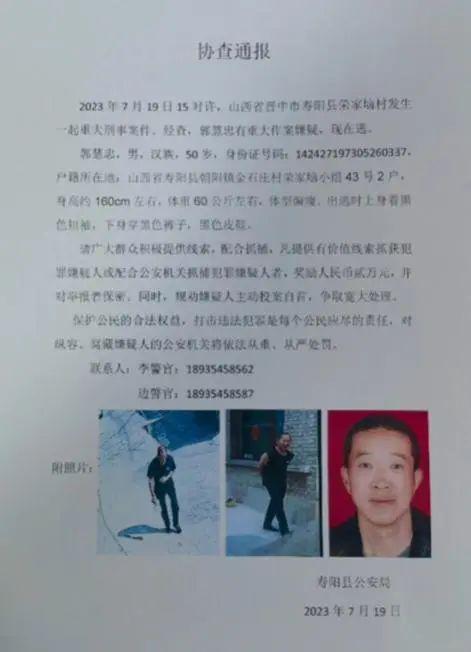 协查通报
2023年7月19日15时许，山西省晋中市寿阳县荣家垴村发生
一起重大刑事案件。经查，郭慧忠有重大作案嫌疑，现在逃。
郭慧忠，男，汉族，50岁，身份证号码：142427197305260337，
户籍所在地：山西省寿阳县朝阳镇金石庄村荣家垴小组43号2户，
身高约160cm左右，体重60公斤左右，体型偏瘦。出逃时上身着黑
色短袖，下身穿黑色裤子，黑色皮鞋。
请广大群众积极提供线索，配合抓捕，凡提供有价值线索抓获
犯罪嫌疑人或配合公安机关抓捕犯罪嫌疑人者，奖励人民币贰万元，并
对举报者保密。同时，规劝嫌疑人主动投案自首，争取宽大处理。
保护公民的合法权益，打击违法犯罪是每个公民应尽的责任，对
纵容、窝藏嫌疑人的公安机关将依法从重、从严处罚。
联系人：李警官：18935458562
边警官：18935458587
附照片：
寿阳县公安局
2023年7月19日